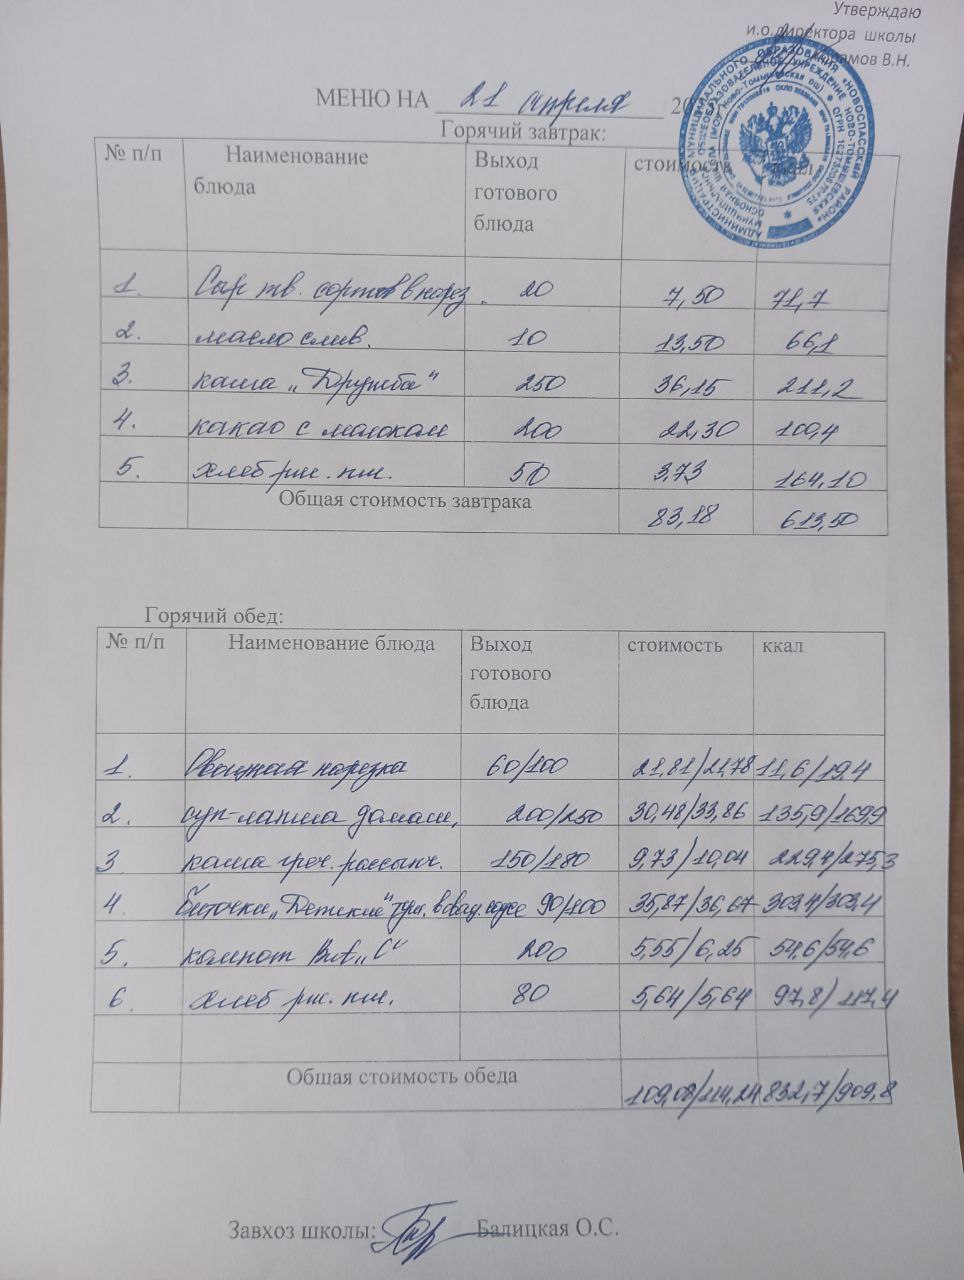 Утверждаю
и.о.директора школы
МЕНЮ НА 21 апреля 20
Горячий завтрак:
№ п/п Наименование блюда Выход готового блюда стоимость ккал
1. Сыр тв. сортов в нарез. 20 7,50 71,7
2. масло слив. 10 13,50 66,1
3. каша „Дружба" 250 36,15 211,2
4. какао с молоком 200 22,30 100,4
5. хлеб рж. пш. 50 3,73 164,10
Общая стоимость завтрака 83,18 613,50
Горячий обед:
№ п/п Наименование блюда Выход готового блюда стоимость ккал
1. Овощная нарезка 60/100 21,81/21,78 11,6/19,4
2. суп-лапша домаш. 200/250 30,48/33,86 135,9/169,9
3 каша греч. рассыпч. 150/180 9,73/10,04 229,4/275,3
4. Биточки „Детские" 90/100 35,87/36,67 303,4/303,4
5. компот Вит „С" 200 5,55/6,25 54,6/54,6
6. хлеб рж. пш. 80 5,64/5,64 97,8/117,4
Общая стоимость обеда 109,08/114,24 832,7/909,8
Завхоз школы: Балицкая О.С.